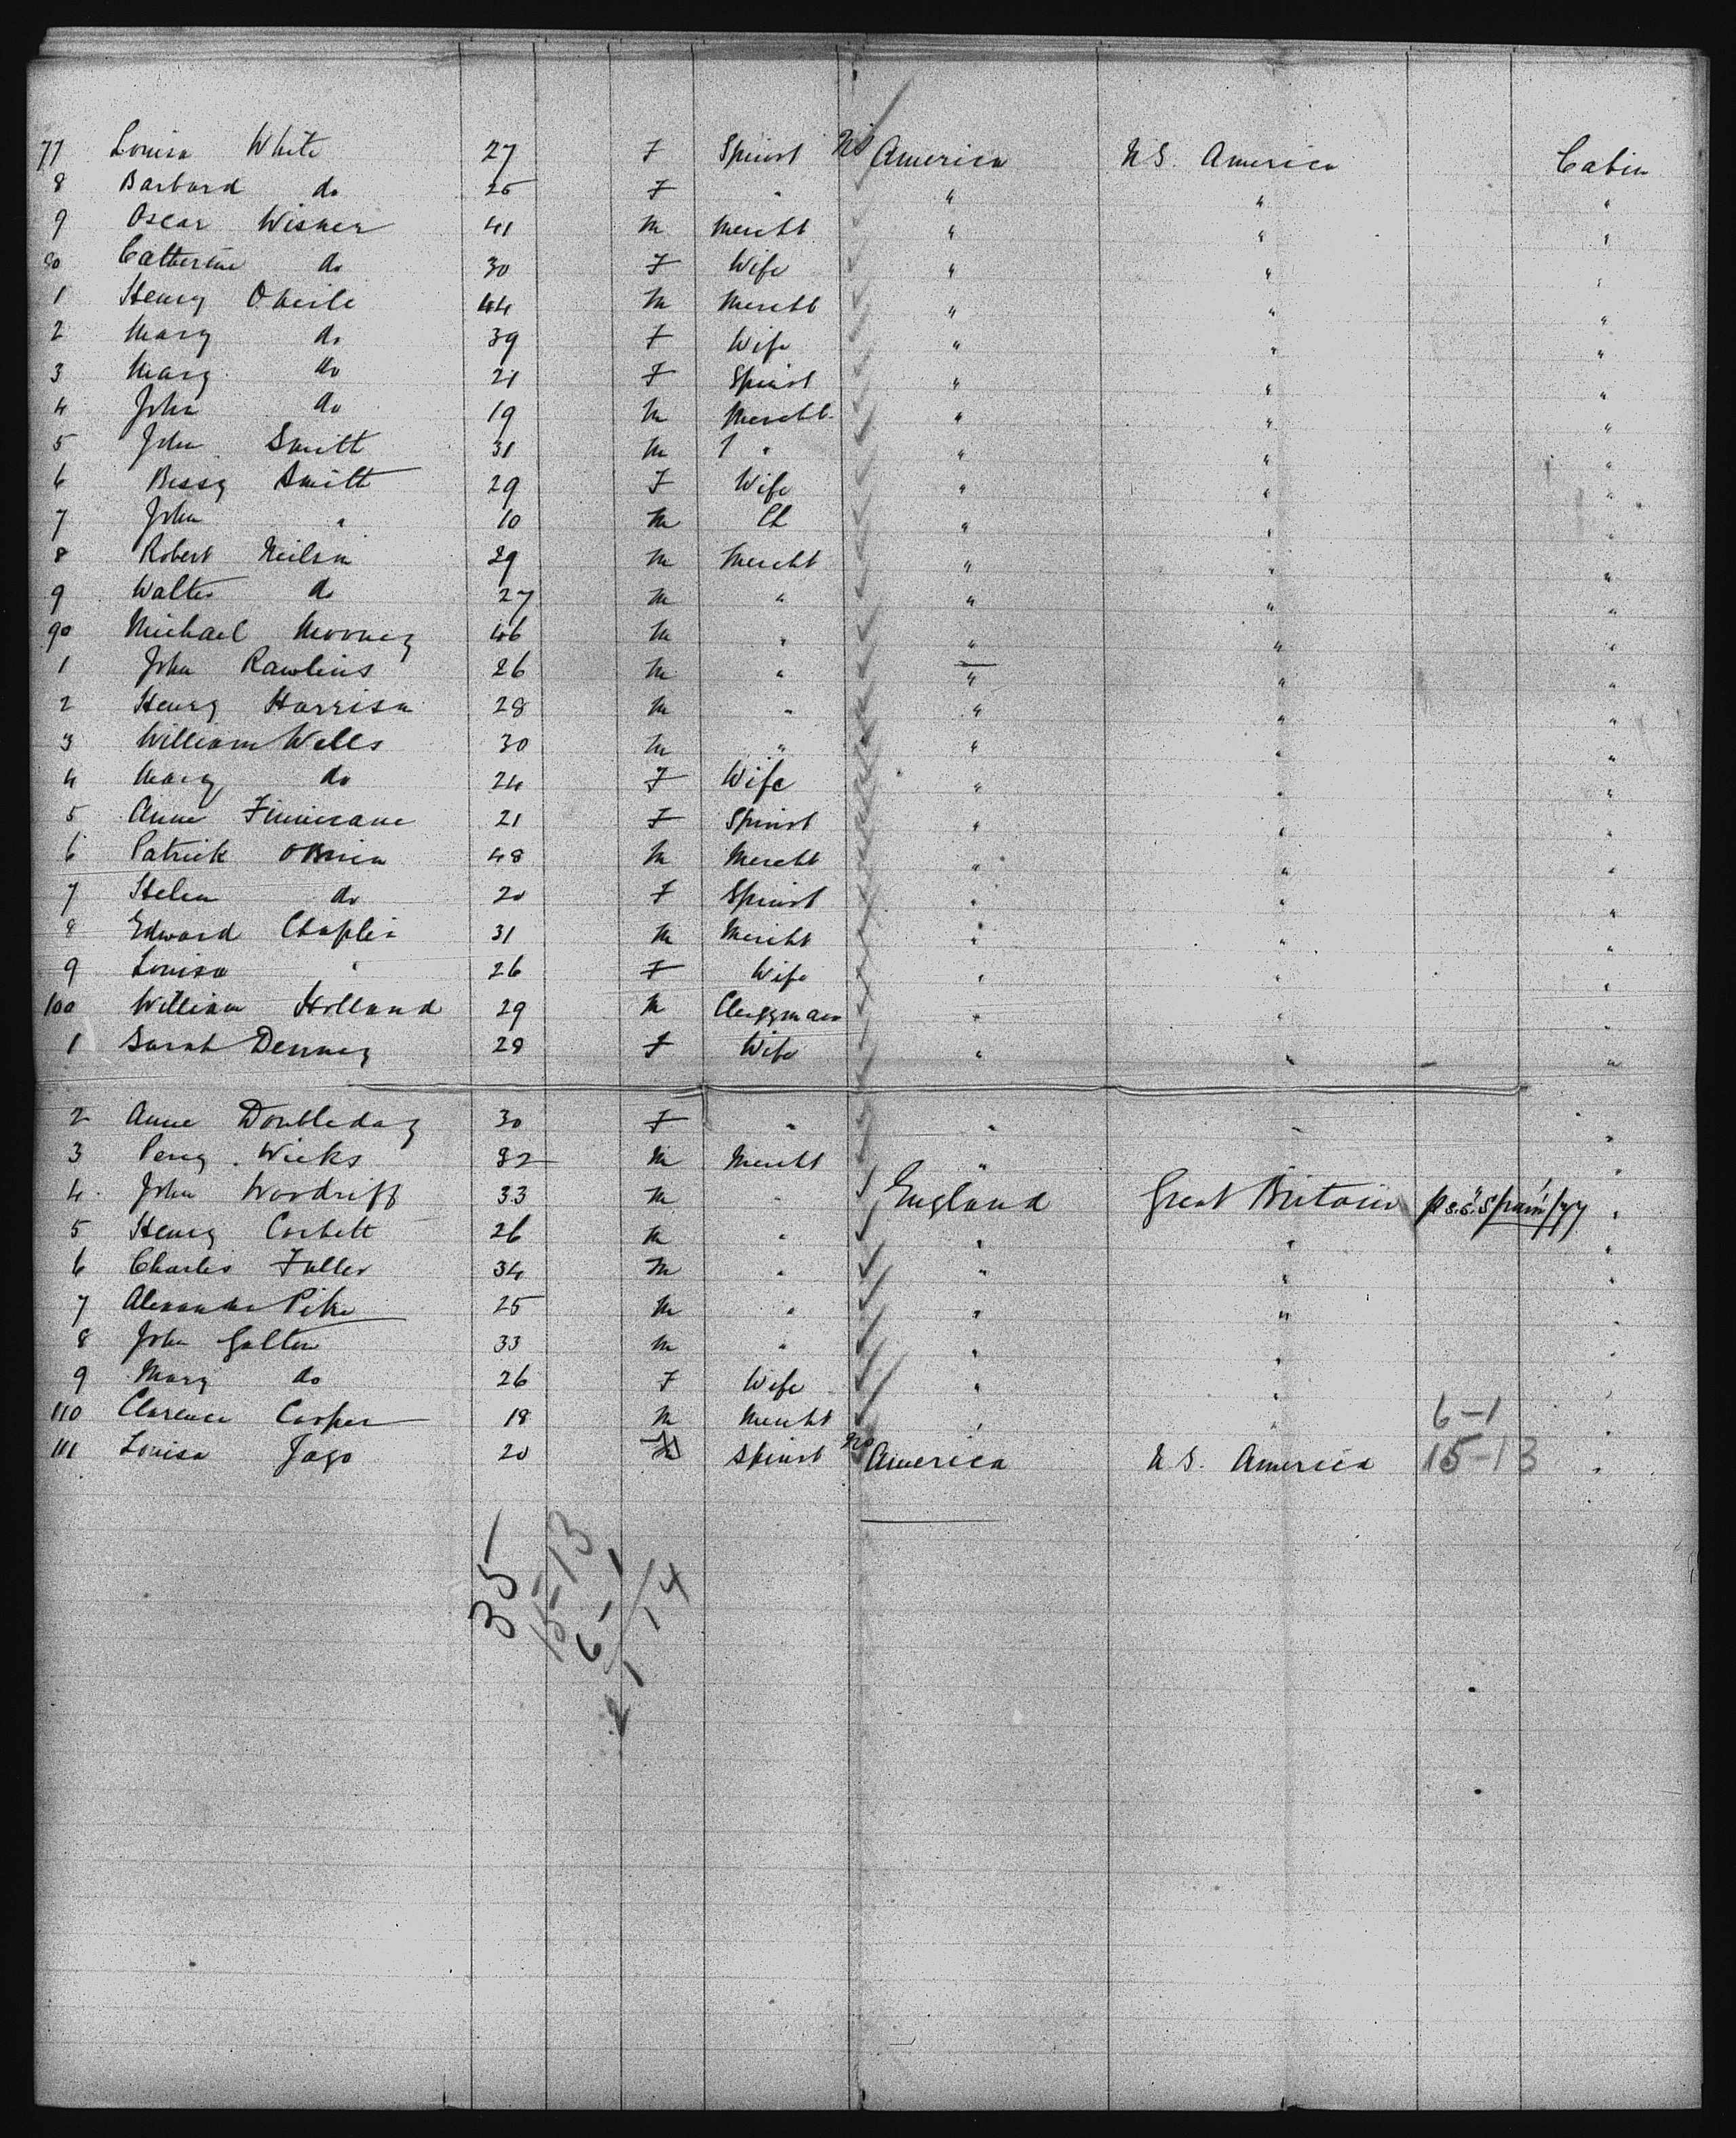 77 Louisa White 27 F Spinst US America U.S. America Cabin
8 Barbard do 25 F " " " "
9 Oscar Wisner 41 M Mercht " " "
80 Catherine do 30 F Wife " " "
1 Henry 44 M Mercht " " "
2 Mary do 39 F Wife " " "
3 Mary do 21 F Spinst " " "
4 John do 19 M Mercht " " "
5 John Smith 31 M " " " "
6 Bessy Smith 29 F Wife " " "
7 John " 10 M Ch " " "
8 Robert Neilson 29 M Mercht " " "
9 Walter do 27 M " " " "
90 Michael Mooney 46 M " " " "
1 John Rawlins 26 M " " " "
2 Henry Harrison 28 M " " " "
3 William Wells 30 M " " " "
4 Mary do 24 F Wife " " "
5 Anne Finucane 21 F Spinst " " "
6 Patrick OBrien 48 M Mercht " " "
7 Helen do 20 F Spinst " " "
8 Edward Chaplin 31 M Mercht " " "
9 Louisa " 26 F Wife " " "
100 William Holland 29 M Clergyman " " "
1 Sarah Denney 28 F Wife " " "
2 Anne Doubleday 30 F " " " "
3 Percy Wicks 32 M Mercht " " "
4 John Woodriff 33 M " England Great Britain p s.s. "Spain" /77 "
5 Henry Corbett 26 M " " " "
6 Charles Fuller 34 M " " " "
7 Alexander Pike 25 M " " " "
8 John Galten 33 M " " " "
9 Mary do 26 F Wife " " "
110 Clarence Cooper 18 M Mercht " " 6-1 "
111 Louisa Jago 20 Spinst US America U.S. America 15-13 "
35
15-13
6-1
21/14